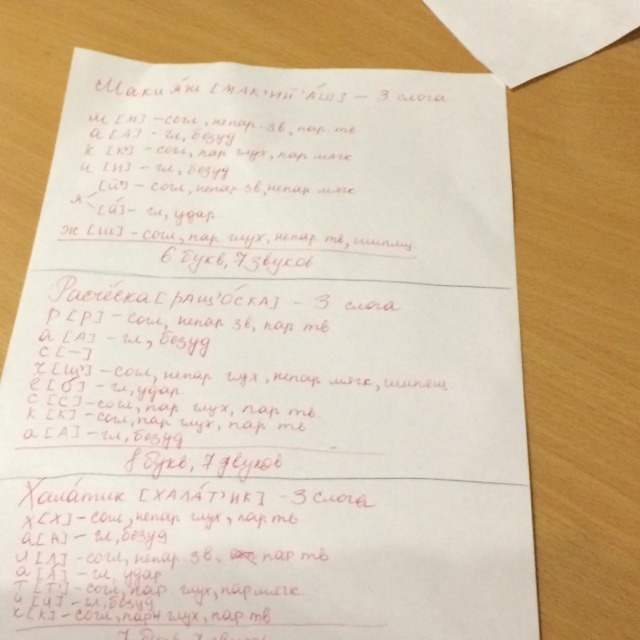 Макия́ж [МАК'ИЙ'А́Ш] – 3 слога
м [М] – согл, непар. зв, пар тв
а [А] – гл, безуд
к [К'] – согл, пар глух, пар мягк
и [И] – гл, безуд
[й'] – согл, непар зв, непар мягк
я
[а́] – гл, удар
ж [Ш] – согл, пар глух, непар тв, шипящ
6 букв, 7 звуков
Расчёска [РАЩ'О́СКА] – 3 слога
р [Р] – согл, непар зв, пар тв
а [А] – гл, безуд
с [–]
ч [Щ'] – согл, непар глух, непар мягк, шипящ
ё [о́] – гл, удар
с [С] – согл, пар глух, пар тв
к [К] – согл, пар глух, пар тв
а [А] – гл, безуд
8 букв, 7 звуков
Хала́тик [ХАЛА́Т'ИК] – 3 слога
х [Х] – согл, непар глух, пар тв
а [А] – гл, безуд
л [Л] – согл, непар зв, пар тв
а [А́] – гл, удар
т [Т'] – согл, пар глух, пар мягк
и [И] – гл, безуд
к [К] – согл, парн глух, пар тв
7 букв, 7 звуков